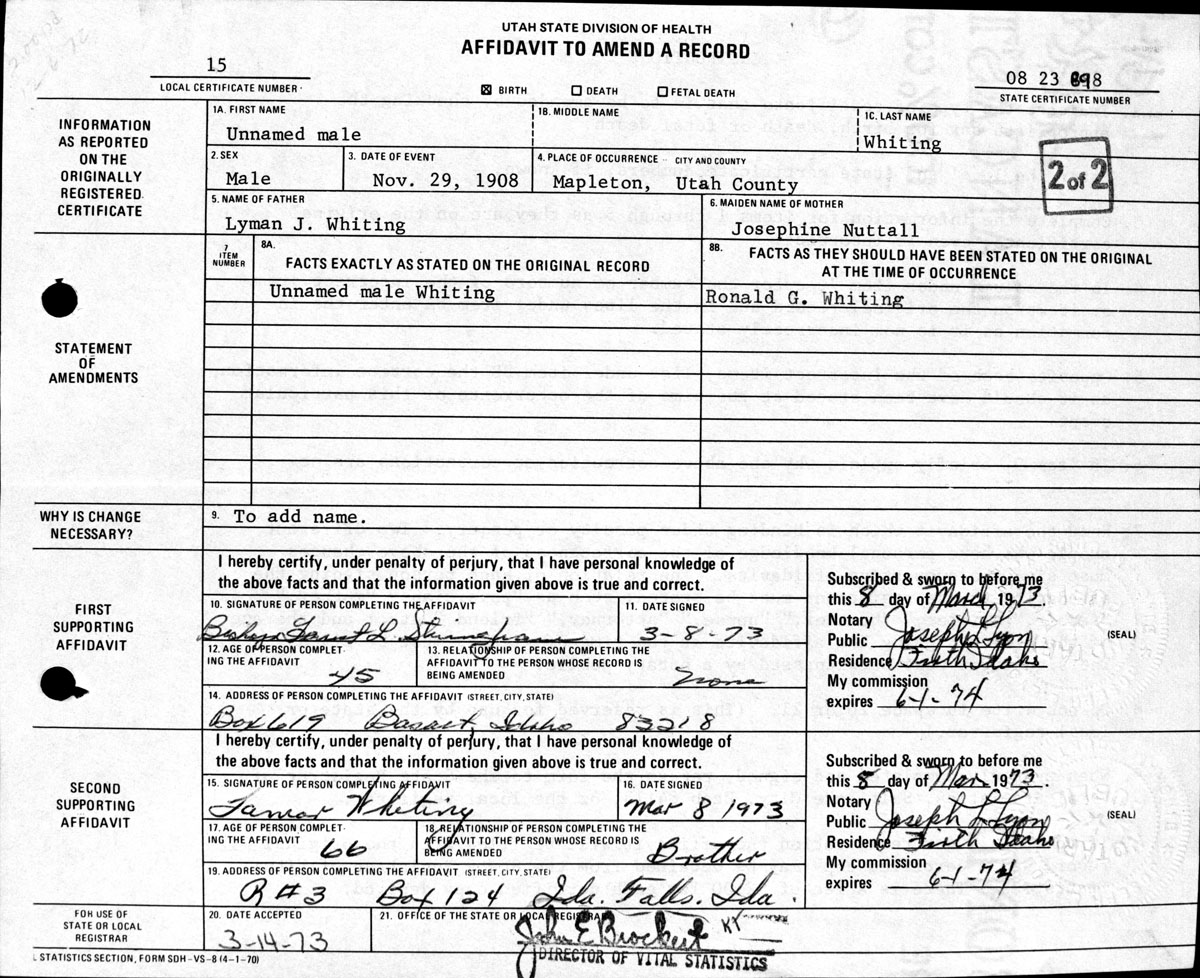 UTAH STATE DIVISION OF HEALTH
AFFIDAVIT TO AMEND A RECORD
15
LOCAL CERTIFICATE NUMBER
☒ BIRTH ☐ DEATH ☐ FETAL DEATH
08 23 698
STATE CERTIFICATE NUMBER
INFORMATION
AS REPORTED
ON THE
ORIGINALLY
REGISTERED
CERTIFICATE
1A. FIRST NAME
Unnamed male
1B. MIDDLE NAME
1C. LAST NAME
Whiting
2. SEX
Male
3. DATE OF EVENT
Nov. 29, 1908
4. PLACE OF OCCURRENCE - CITY AND COUNTY
Mapleton, Utah County
2 of 2
5. NAME OF FATHER
Lyman J. Whiting
6. MAIDEN NAME OF MOTHER
Josephine Nuttall
STATEMENT
OF
AMENDMENTS
7
ITEM
NUMBER
8A.
FACTS EXACTLY AS STATED ON THE ORIGINAL RECORD
8B.
FACTS AS THEY SHOULD HAVE BEEN STATED ON THE ORIGINAL
AT THE TIME OF OCCURRENCE
Unnamed male Whiting
Ronald G. Whiting
WHY IS CHANGE
NECESSARY?
9. To add name.
FIRST
SUPPORTING
AFFIDAVIT
I hereby certify, under penalty of perjury, that I have personal knowledge of
the above facts and that the information given above is true and correct.
10. SIGNATURE OF PERSON COMPLETING THE AFFIDAVIT
Bishop L.
11. DATE SIGNED
3-8-73
12. AGE OF PERSON COMPLET-
ING THE AFFIDAVIT
45
13. RELATIONSHIP OF PERSON COMPLETING THE
AFFIDAVIT TO THE PERSON WHOSE RECORD IS
BEING AMENDED
None
14. ADDRESS OF PERSON COMPLETING THE AFFIDAVIT (STREET, CITY, STATE)
Box 619 Basalt, Idaho 83218
Subscribed & sworn to before me
this 8 day of March 1973.
Notary
Public Joseph L Lyon
(SEAL)
Residence Firth Idaho
My commission
expires 6-1-74
SECOND
SUPPORTING
AFFIDAVIT
I hereby certify, under penalty of perjury, that I have personal knowledge of
the above facts and that the information given above is true and correct.
15. SIGNATURE OF PERSON COMPLETING AFFIDAVIT
Lamar Whiting
16. DATE SIGNED
Mar 8 1973
17. AGE OF PERSON COMPLET-
ING THE AFFIDAVIT
66
18. RELATIONSHIP OF PERSON COMPLETING THE
AFFIDAVIT TO THE PERSON WHOSE RECORD IS
BEING AMENDED
Brother
19. ADDRESS OF PERSON COMPLETING THE AFFIDAVIT (STREET, CITY, STATE)
R #3 Box 124 Ida. Falls. Ida.
Subscribed & sworn to before me
this 8 day of Mar 1973.
Notary
Public Joseph L Lyon
(SEAL)
Residence Firth Idaho
My commission
expires 6-1-74
FOR USE OF
STATE OR LOCAL
REGISTRAR
20. DATE ACCEPTED
3-14-73
21. OFFICE OF THE STATE OR LOCAL REGISTRAR
John E Brockert
DIRECTOR OF VITAL STATISTICS
STATISTICS SECTION, FORM SDH-VS-8 (4-1-70)